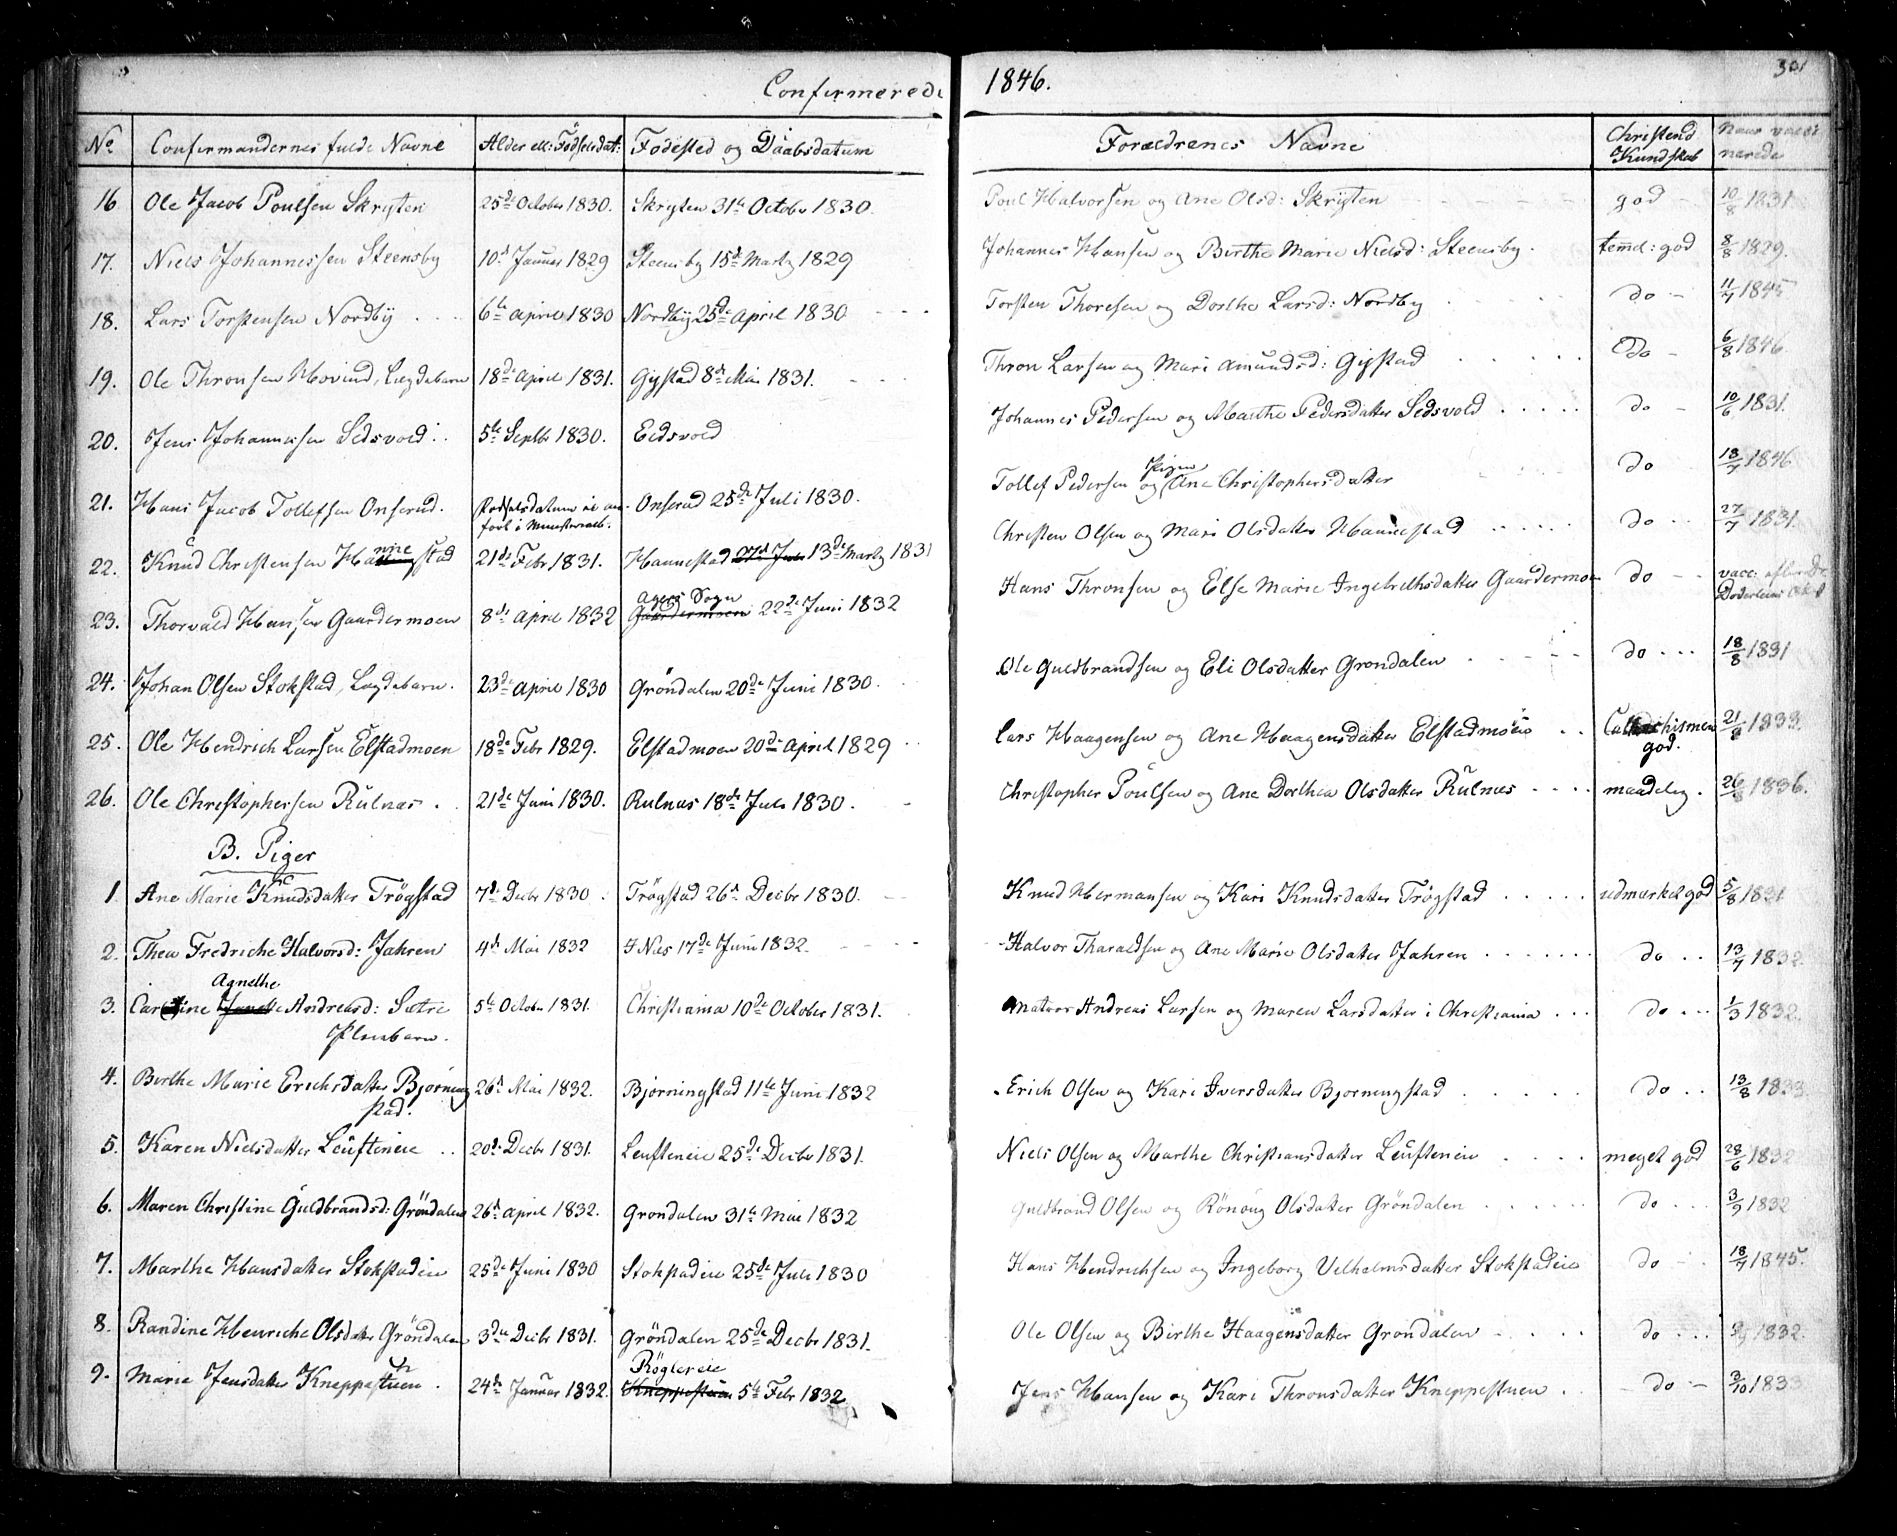 Confirmerede 1846.
301
No Confirmandernes fulde Navne Alder ell: Fødselsdat: Fødested og Daabsdatum Forældrenes Navne Christend Kundskab Naar vacci nerede
16 Ole Jacob Poulsen Skrysten 25de October 1830. Skrysten 31te Octobr 1830. Poul Halvorsen og Ane Olsd: Skrysten god 10/8 1831
17. Niels Johannessen Steensby 10de Januar 1829 Steensby 15de Marts 1829 Johannes Hansen og Birthe Marie Nielsd: Steensby. temel: god 8/8 1829.
18. Lars Torstensen Nordby 6te April 1830 Nordby 25de April 1830 Torsten Thoresen og Dorthe Larsd: Nordby do 11/7 1845
19. Ole Thronsen Hovind, Lægdebarn 18de April 1831. Gystad 8de Mai 1831. Thron Larsen og Mari Amundsd: Gystad do 6/8 1846
20. Jens Johannessen Sedsvold 5te Septbr 1830. Eidsvold Johannes Pedersen og Marthe Pedersdatter Sedsvold do 10/6 1831.
21. Hans Jacob Tollefsen Onserud. Fødselsdatum ei an-ført i Ministerialb. Onserud 25de Juli 1830. Tollef Pedersen og Pigen Ane Christophersdatter do 18/7 1846
22. Knud Christensen Hannestad 21de Febr 1831. Hannestad 27d Febr 13de Marts 1831 Christen Olsen og Mari Olsdatter Hannestad do 27/7 1831.
23. Thorvald Hansen Gaardermoen 8de April 1832 Agers Sogn Gaardermoen 22de Juni 1832 Hans Thronsen og Else Marie Ingebrethsdatter Gaardermoen do vacc: efter Doderleins Att
24. Johan Olsen Stokstad, Lægdebarn. 23de April 1830 Grøndalen 20de Juni 1830. Ole Guldbrandsen og Eli Olsdatter Grøndalen do 18/8 1831
25. Ole Hendrich Larsen Elstadmoen 18de Febr 1829. Elstadmoen 20de April 1829 Lars Haagensen og Ane Haagensdatter Elstadmoen Catechismen god. 21/8 1833.
26. Ole Christophersen Rulnæs 21de Juni 1830. Rulnæs 18de Juli 1830. Christopher Poulsen og Ane Dorthea Olsdatter Rulnæs maadelig. 26/8 1836.
B. Piger
1. Ane Marie Knudsdatter Trøgstad 7de Decbr 1830 Trøgstad 26de Decbr 1830. Knud Hermansen og Kari Knudsdatter Trøgstad udmærket god 5/8 1831
2. Thea Fredriche Halvorsd: Jahren 4de Mai 1832 I Nes 17de Juni 1832 Halvor Tharaldsen og Ane Marie Olsdatter Jahren do 13/7 1832.
3. Caroline Agnethe Andreasd: Sætre Pleiebarn. 5te October 1831. Christiania 10de October 1831. Matros Andreas Larsen og Maren Larsdatter i Christiania do 1/3 1832.
4. Birthe Marie Erichsdatter Bjørning stad. 26de Mai 1832. Bjørningstad 11te Juni 1832 Erich Olsen og Kari Iversdatter Bjørningstad do 13/8 1833
5. Karen Nielsdatter Leufteneie 20de Decbr 1831. Leufteneie 25de Decbr 1831. Niels Olsen og Marthe Christiansdatter Leufteneie meget god 28/6 1832
6. Maren Christine Guldbrandsd: Grøndalen 26de April 1832. Grøndalen 31te Mai 1832 Guldbrand Olsen og Rønoug Olsdatter Grøndalen do 3/9 1832
7. Marthe Hansdatter Stokstadeie 25de Juni 1830 Stokstadeie 25de Juli 1830 Hans Hendrichsen og Ingeborg Velhelmsdatter Stokstadeie do 18/7 1845.
8. Randine Henriche Olsdatter Grøndalen 3die Decbr 1831. Grøndalen 25de Decbr 1831. Ole Olsen og Birthe Haagensdatter Grøndalen do 1832.
9. Marie Jensdatter Kneppestuen 24de Januar 1832. Røglereie Kneppestuen 5te Febr 1832 Jens Hansen og Kari Thronsdatter Kneppestuen do 3/10 1833